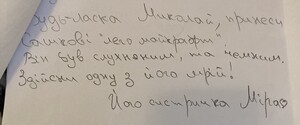 Будь ласка Миколай, принеси
Сашкові "лего майнкрафт"
Він був слухняним, та чемним.
Здійсни одну з його мрій!
Його сестричка Міра♡